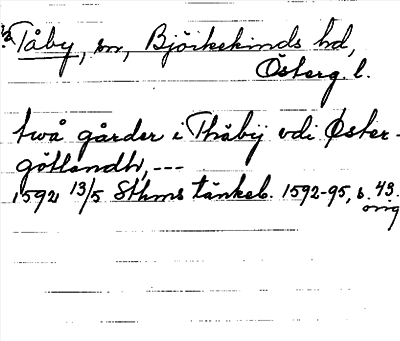 Tåby, sn, Björkekinds hd,
Österg. l.
två gårder i Thåbij vdi Øster-
götlandh, ---
1592 13/5 Sthms tänkeb. 1592-95, s. 43.
orig